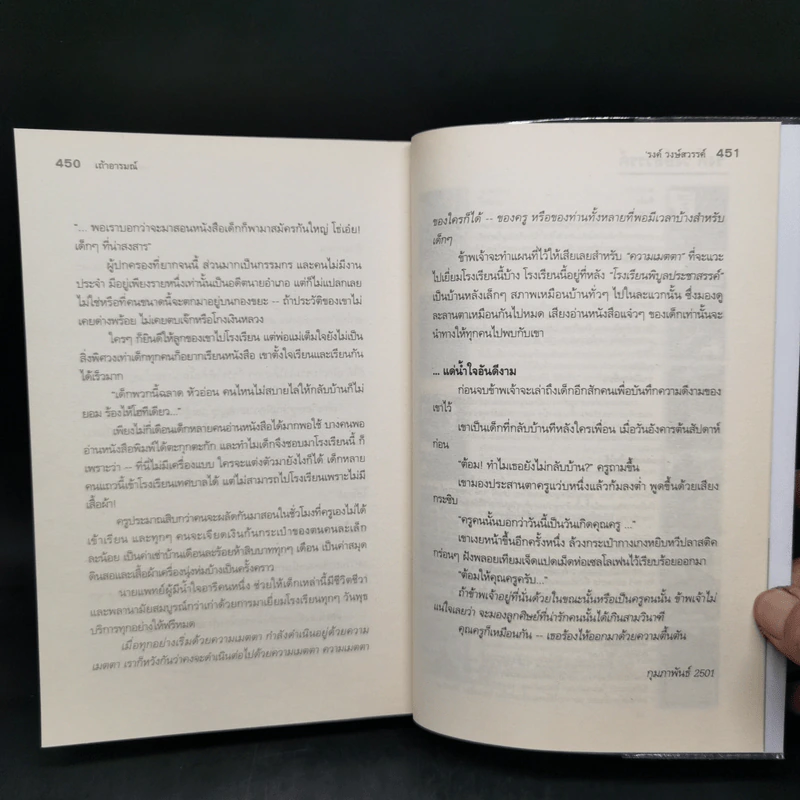 450 เถ้าอารมณ์
"... พอเราบอกว่าจะมาสอนหนังสือเด็กก็พามาสมัครกันใหญ่ โธ่เอ๋ย!
เด็กๆ ที่น่าสงสาร"
ผู้ปกครองที่ยากจนนี้ ส่วนมากเป็นกรรมกร และคนไม่มีงาน
ประจำ มีอยู่เพียงรายหนึ่งเท่านั้นเป็นอดีตนายอำเภอ แต่ก็ไม่แปลกเลย
ไม่ใช่หรือที่คนขนาดนี้จะตกมาอยู่บนกองขยะ -- ถ้าประวัติของเขาไม่
เคยด่างพร้อย ไม่เคยตบเจ๊กหรือโกงเงินหลวง
ใครๆ ก็ยินดีให้ลูกของเขาไปโรงเรียน แต่พ่อแม่เต็มใจยังไม่เป็น
สิ่งพิศวงเท่าเด็กทุกคนก็อยากเรียนหนังสือ เขาตั้งใจเรียนและเรียนกัน
ได้เร็วมาก
"เด็กพวกนี้ฉลาด หัวอ่อน คนไหนไม่สบายไล่ให้กลับบ้านก็ไม่
ยอม ร้องไห้โฮทีเดียว..."
เพียงไม่กี่เดือนเด็กหลายคนอ่านหนังสือได้มากพอใช้ บางคนพอ
อ่านหนังสือพิมพ์ได้ตะกุกตะกัก และทำไมเด็กจึงชอบมาโรงเรียนนี้ ก็
เพราะว่า -- ที่นี่ไม่มีเครื่องแบบ ใครจะแต่งตัวมายังไงก็ได้ เด็กหลาย
คนแถวนี้เข้าโรงเรียนเทศบาลได้ แต่ไม่สามารถไปโรงเรียนเพราะไม่มี
เสื้อผ้า!
ครูประมาณสิบกว่าคนจะผลัดกันมาสอนในชั่วโมงที่ครูเองไม่ได้
เข้าเรียน และทุกๆ คนจะเจียดเงินก้นกระเป๋าของตนคนละเล็ก
ละน้อย เป็นค่าเช่าบ้านเดือนละร้อยห้าสิบบาททุกๆ เดือน เป็นค่าสมุด
ดินสอและเสื้อผ้าเครื่องนุ่งห่มบ้างเป็นครั้งคราว
นายแพทย์ผู้มีน้ำใจอารีคนหนึ่ง ช่วยให้เด็กเหล่านี้มีชีวิตชีวา
และพลานามัยสมบูรณ์กว่าเก่าด้วยการมาเยี่ยมโรงเรียนทุกๆ วันพุธ
บริการทุกอย่างให้ฟรีหมด
เมื่อทุกอย่างเริ่มด้วยความเมตตา กำลังดำเนินอยู่ด้วยความ
เมตตา เราก็หวังกันว่าคงจะดำเนินต่อไปด้วยความเมตตา ความเมตตา
'รงค์ วงษ์สวรรค์ 451
ของใครก็ได้ -- ของครู หรือของท่านทั้งหลายที่พอมีเวลาบ้างสำหรับ
เด็กๆ
ข้าพเจ้าจะทำแผนที่ไว้ให้เสียเลยสำหรับ "ความเมตตา" ที่จะแวะ
ไปเยี่ยมโรงเรียนนี้บ้าง โรงเรียนนี้อยู่ที่หลัง "โรงเรียนพิบูลประชาสรรค์"
เป็นบ้านหลังเล็กๆ สภาพเหมือนบ้านทั่วๆ ไปในละแวกนั้น ซึ่งมองดู
ละลานตาเหมือนกันไปหมด เสียงอ่านหนังสือแจ้วๆ ของเด็กเท่านั้นจะ
นำทางให้ทุกคนไปพบกับเขา
... แด่น้ำใจอันดีงาม
ก่อนจบข้าพเจ้าจะเล่าถึงเด็กอีกสักคนเพื่อบันทึกความดีงามของ
เขาไว้
เขาเป็นเด็กที่กลับบ้านทีหลังใครเพื่อน เมื่อวันอังคารต้นสัปดาห์
ก่อน
"ต้อม! ทำไมเธอยังไม่กลับบ้าน?" ครูถามขึ้น
เขามองประสานตาครูแว่บหนึ่งแล้วก้มลงต่ำ พูดขึ้นด้วยเสียง
กระซิบ
"ครูคนนั้นบอกว่าวันนี้เป็นวันเกิดคุณครู ..."
เขาเงยหน้าขึ้นอีกครั้งหนึ่ง ล้วงกระเป๋ากางเกงหยิบทวีปลาสติค
กร่อนๆ ฝังพลอยเทียมเจ็ดแปดเม็ดห่อเซลโลเฟนไว้เรียบร้อยออกมา
"ต้อมให้คุณครูครับ..."
ถ้าข้าพเจ้าอยู่ที่นั่นด้วยในขณะนั้นหรือเป็นครูคนนั้น ข้าพเจ้าไม่
แน่ใจเลยว่า จะมองลูกศิษย์ที่น่ารักคนนั้นได้เกินสามวินาที
คุณครูก็เหมือนกัน -- เธอร้องไห้ออกมาด้วยความตื้นตัน
กุมภาพันธ์ 2501